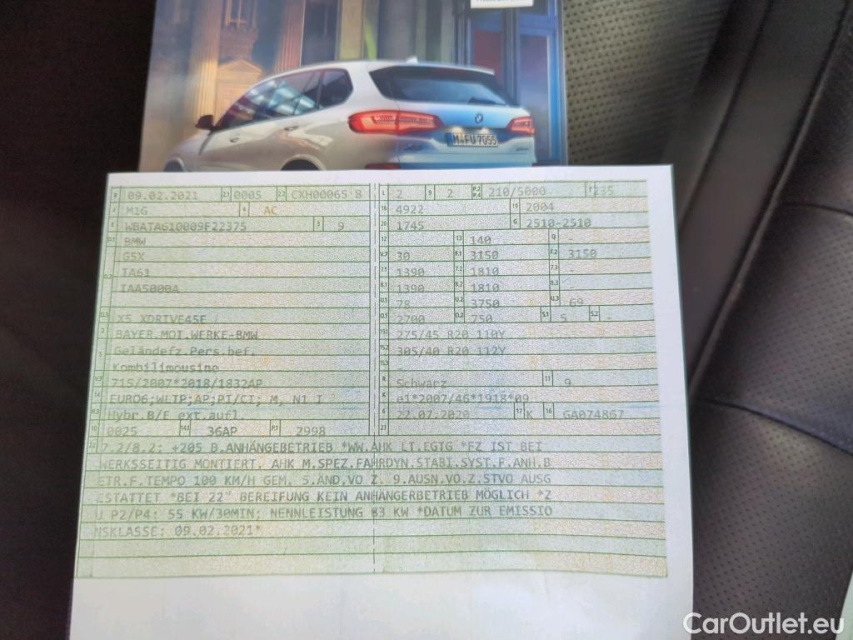 M·FU 7055
09.02.2021 0005 CXH00065 8 2 2 210/5000 235
M1G AC 4922 2004
WBATA610009F22375 9 1745 2510-2510
BMW - 140 -
G5X 30 3150 3150
TA61 1390 1810 -
TAA5000A 1390 1810 -
78 3750 69
X5 XDRIVE45E 2700 750 5 -
BAYER.MOT.WERKE-BMW 275/45 R20 110Y
Geländefz.Pers.bef. 305/40 R20 112Y
Kombilimousine
715/2007*2018/1832AP Schwarz 9
EURO6;WLTP;AP;PI/CI; M, N1 I e1*2007/46*1918*09
Hybr.B/E ext.aufl. 22.07.2020 K GA074867
0025 36AP 2998
7.2/8.2: +205 B.ANHÄNGEBETRIEB *WW.AHK LT.EGTG *FZ IST BEI
WERKSSEITIG MONTIERT. AHK M.SPEZ.FAHRDYN.STABI.SYST.F.ANH.B
ETR.F.TEMPO 100 KM/H GEM. 5.ÄND.VO Z. 9.AUSN.VO.Z.STVO AUSG
ESTATTET *BEI 22" BEREIFUNG KEIN ANHÄNGERBETRIEB MÖGLICH *Z
U P2/P4: 55 KW/30MIN; NENNLEISTUNG 83 KW *DATUM ZUR EMISSIO
NSKLASSE: 09.02.2021*
CarOutlet.eu